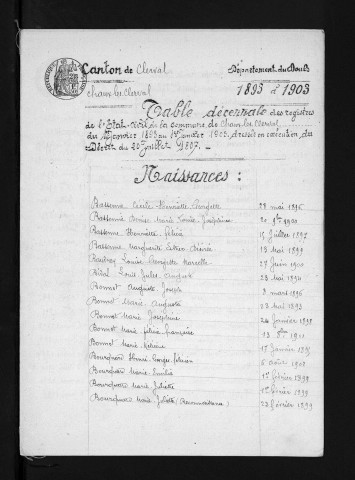 Canton de Clerval
Département du Doubs
Chaux-les-Clerval
1893 à 1903
Table décennale des registres
de l'Etat-civil de la commune de Chaux-les-Clerval
du 1er janvier 1893 au 1er janvier 1903, dressée en exécution du
Décret du 20 juillet 1807. —
Naissances :
Bassenne Cécile Henriette 28 mai 1896
Bassenne Denise Marie Louise Joséphine 20
Bassenne Henriette 15 juillet 1897
Bassenne Marguerite 15 mai 1899
Louise Georgette Marcelle 27 juin
Louis Jules Auguste 28 mai
Bonnot Auguste Joseph 3 mars 1896
Bonnot Marie Augusta 23 mai 1893
Bonnot Marie Joséphine 24 janvier 1898
Bonnot Marie Félicie Françoise 13
Bonnot Marie 15 janvier
Bourquard Henri Georges 6 août
Bourquard Marie Emilie 1er février 1899
Bourquard Marie Juliette 1er février 1899
Bourquard Marie Juliette (Reconnaissance) 23 février 1899